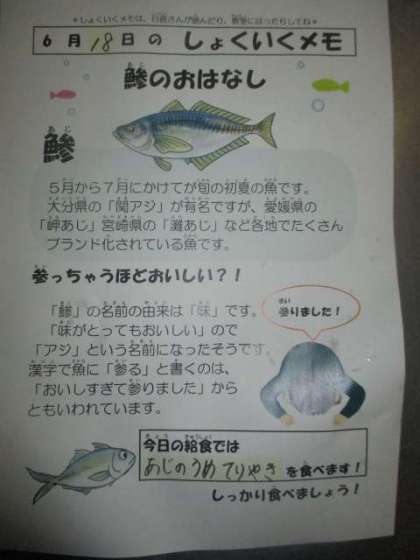 ＊しょくいくメモは、日直さんが読んだり、教室にはったりしてね＊
6月18日の しょくいくメモ
鯵のおはなし
あじ
鯵
５月から７月にかけてが旬の初夏の魚です。
大分県の「関アジ」が有名ですが、愛媛県の
「岬あじ」宮崎県の「灘あじ」など各地でたくさん
ブランド化されている魚です。
参っちゃうほどおいしい？！
「鯵」の名前の由来は「味」です。
「味がとってもおいしい」ので
「アジ」という名前になったそうです。
漢字で魚に「参る」と書くのは、
「おいしすぎて参りました」から
ともいわれています。
まい
参りました！
今日の給食では
あじのうめてりやき を食べます！
しっかり食べましょう！